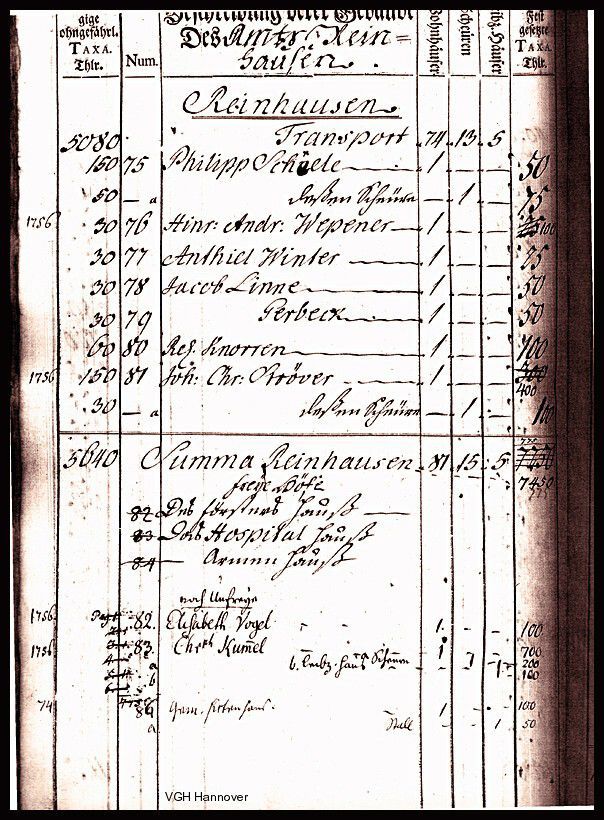 gige
ohngefährl.
TAXA.
Thlr.
Num.
Beschreibung derer Gebäude
Des Amts Rein=
hausen
Wohnhäuser
Scheuren
Lbz. Häuser
Fest
gesetzte
TAXA.
Thlr.
Reinhausen
5080 Transport 74 13 5
150 75 Philipp Schäele 1 50
50 a deßen Scheure 1 75
1756 30 76 Hinr: Andr: Wepener 1 100
30 77 Anthiel Winter 1 25
30 78 Jacob Linne 1 50
30 79 Gerbeck 1 50
60 80 Rel. Knorren 1 100
1756 150 81 Joh: Chr: Ströver 1 400
30 a deßen Scheure 1 100
5640 Summa Reinhausen 81 15 5
freye Höfe 7450
82 Des försters Hauß
83 Das Hospital Hauß
84 Armen Hauß
noch Unfreye
1756 82. Elisabeth Vogel 1 100
1756 83. Kumel 1 700
a Scheuren 1 200
b b. leibz. haus 1 100
74 84 Gem. hirtenhaus 1 100
a Stall 1 50
VGH Hannover